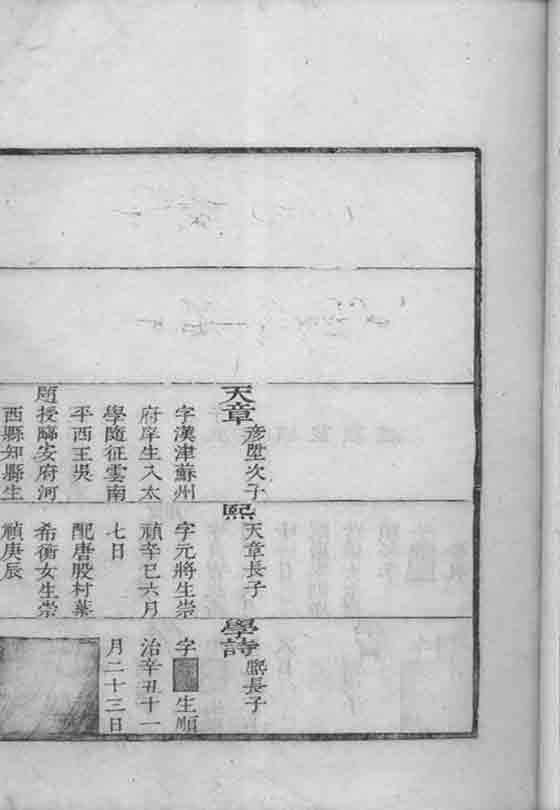 天章 彦堅次子
字漢津蘇州
府庠生入太
學隨征雲南
平西王吳
題授臨安府河
西縣知縣生
熙 天章長子
字元將生崇
禎辛巳六月
七日
配唐股村葉
希衡女生崇
禎庚辰
學詩 熙長子
字 生順
治辛丑十一
月二十三日